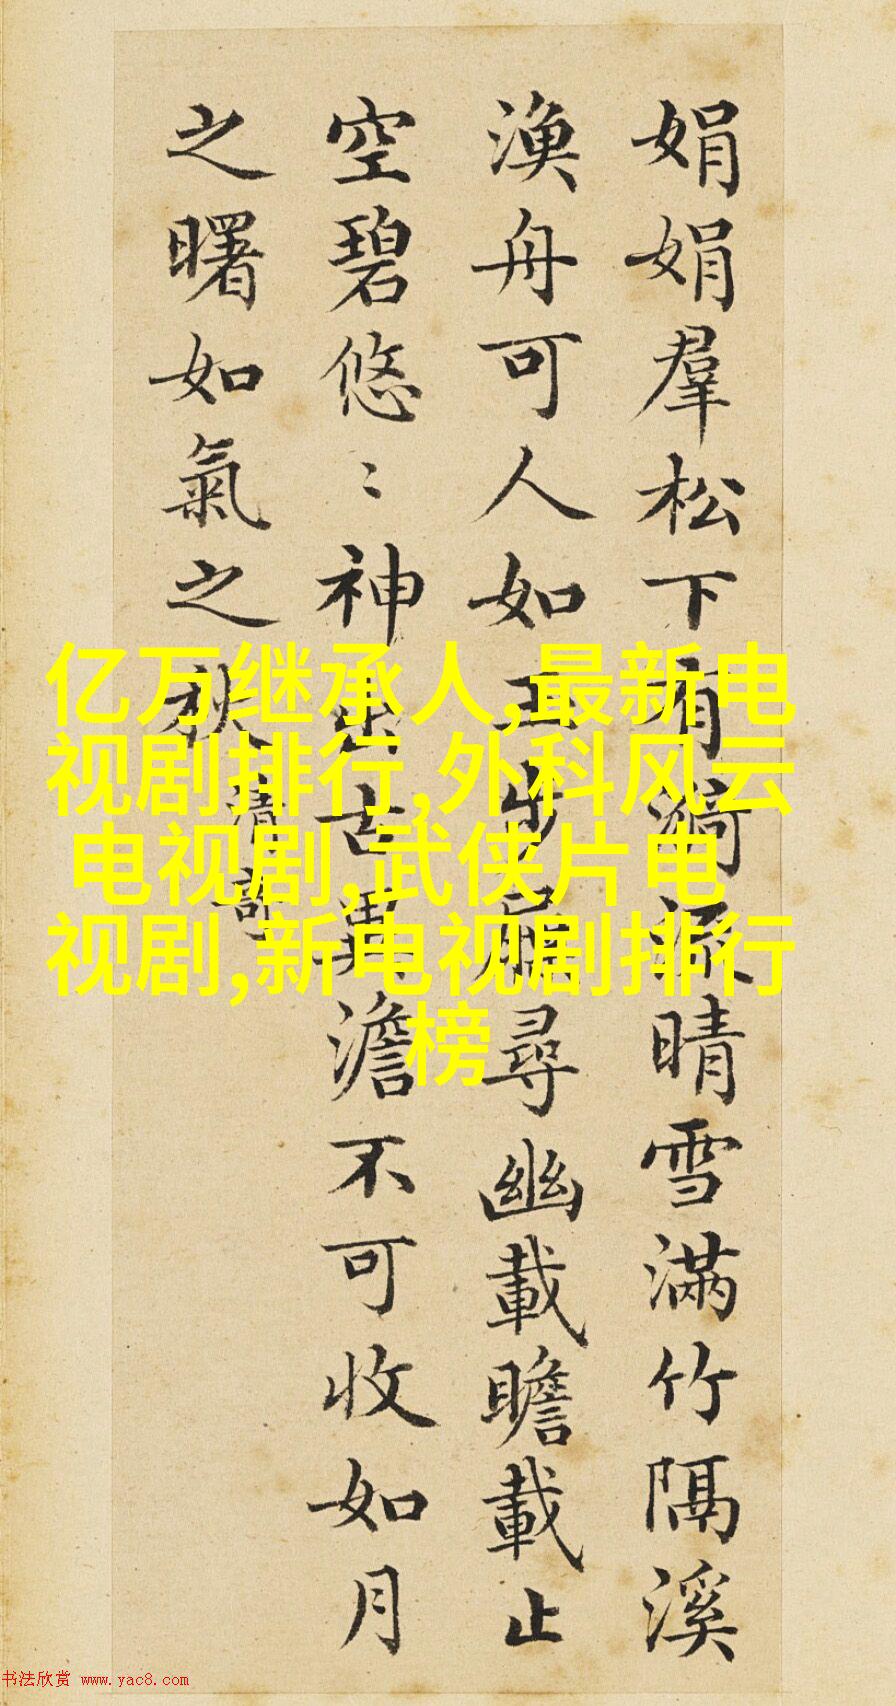 娟娟羣松下有漪流晴雪滿竹隔溪
漁舟可人如玉步屧尋幽載瞻載止
空碧悠〻神出古異澹不可收如月
之曙如氣之秋
清奇
亿万继承人,最新电
视剧排行,外科风云
电视剧,武侠片电
视剧,新电视剧排行
榜
书法欣赏 www.yac8.com